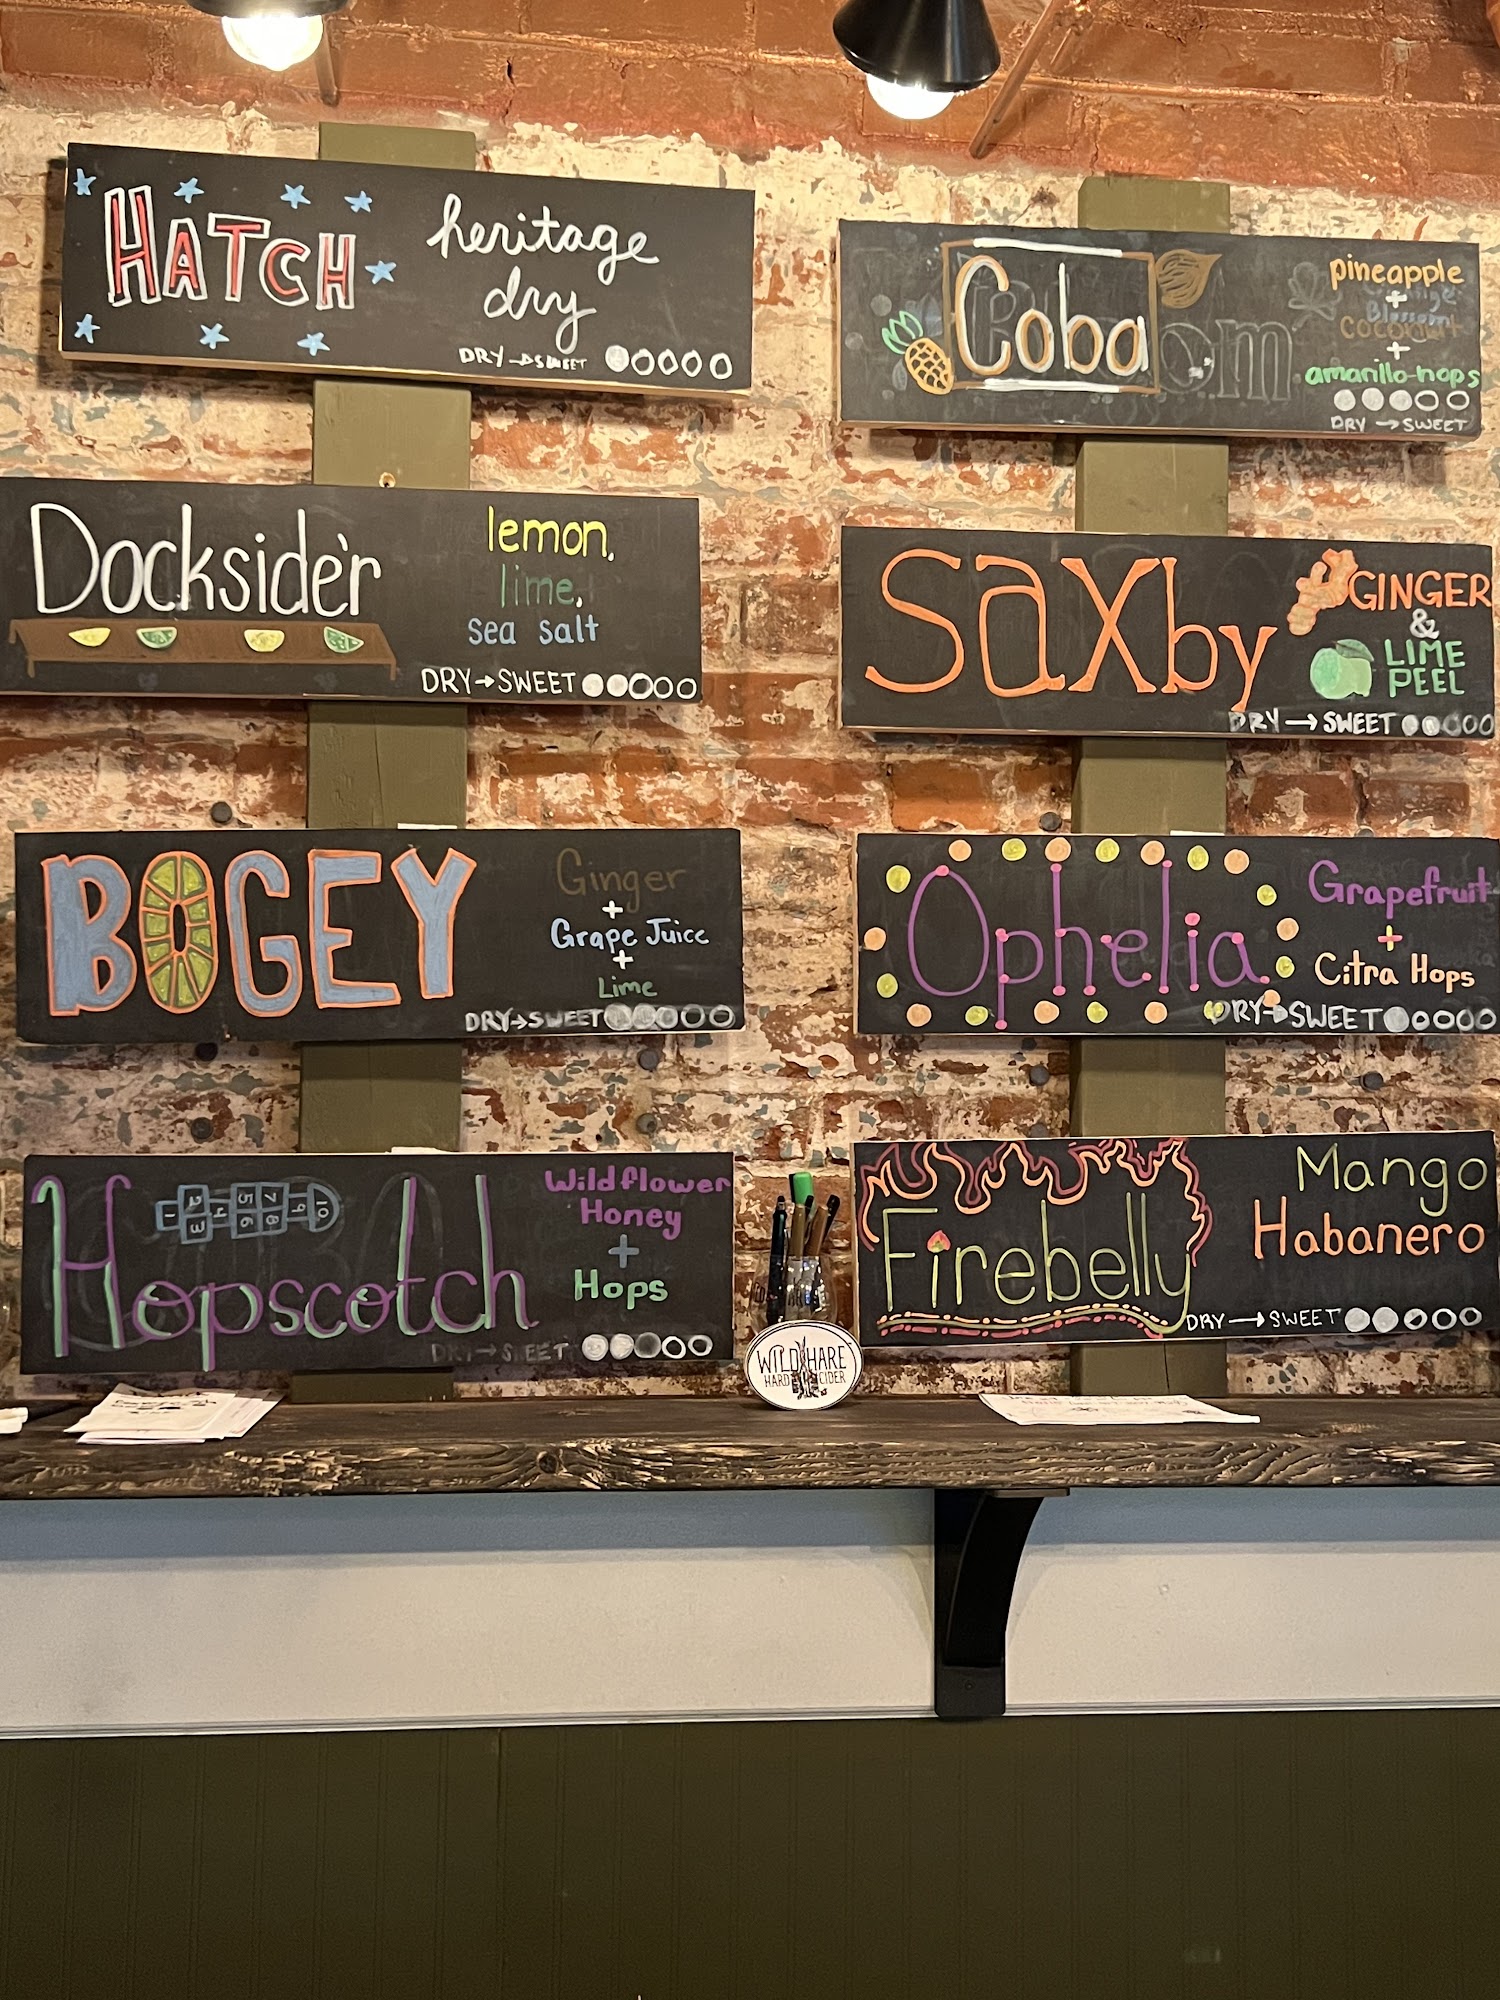 HATCH
heritage
dry
DRY → SWEET
Docksider
lemon,
lime,
sea salt
DRY → SWEET
BOGEY
Ginger
+
Grape Juice
+
Lime
DRY → SWEET
Hopscotch
1 2 3 4 5 6 7 8 9 10
Wildflower
Honey
+
Hops
DRY → SWEET
Coba
pineapple
+
coconut
+
amarillo hops
DRY → SWEET
saxby
GINGER
&
LIME
PEEL
DRY → SWEET
Ophelia
Grapefruit
+
Citra Hops
DRY → SWEET
Firebelly
Mango
Habanero
DRY → SWEET
WILD HARE
HARD CIDER